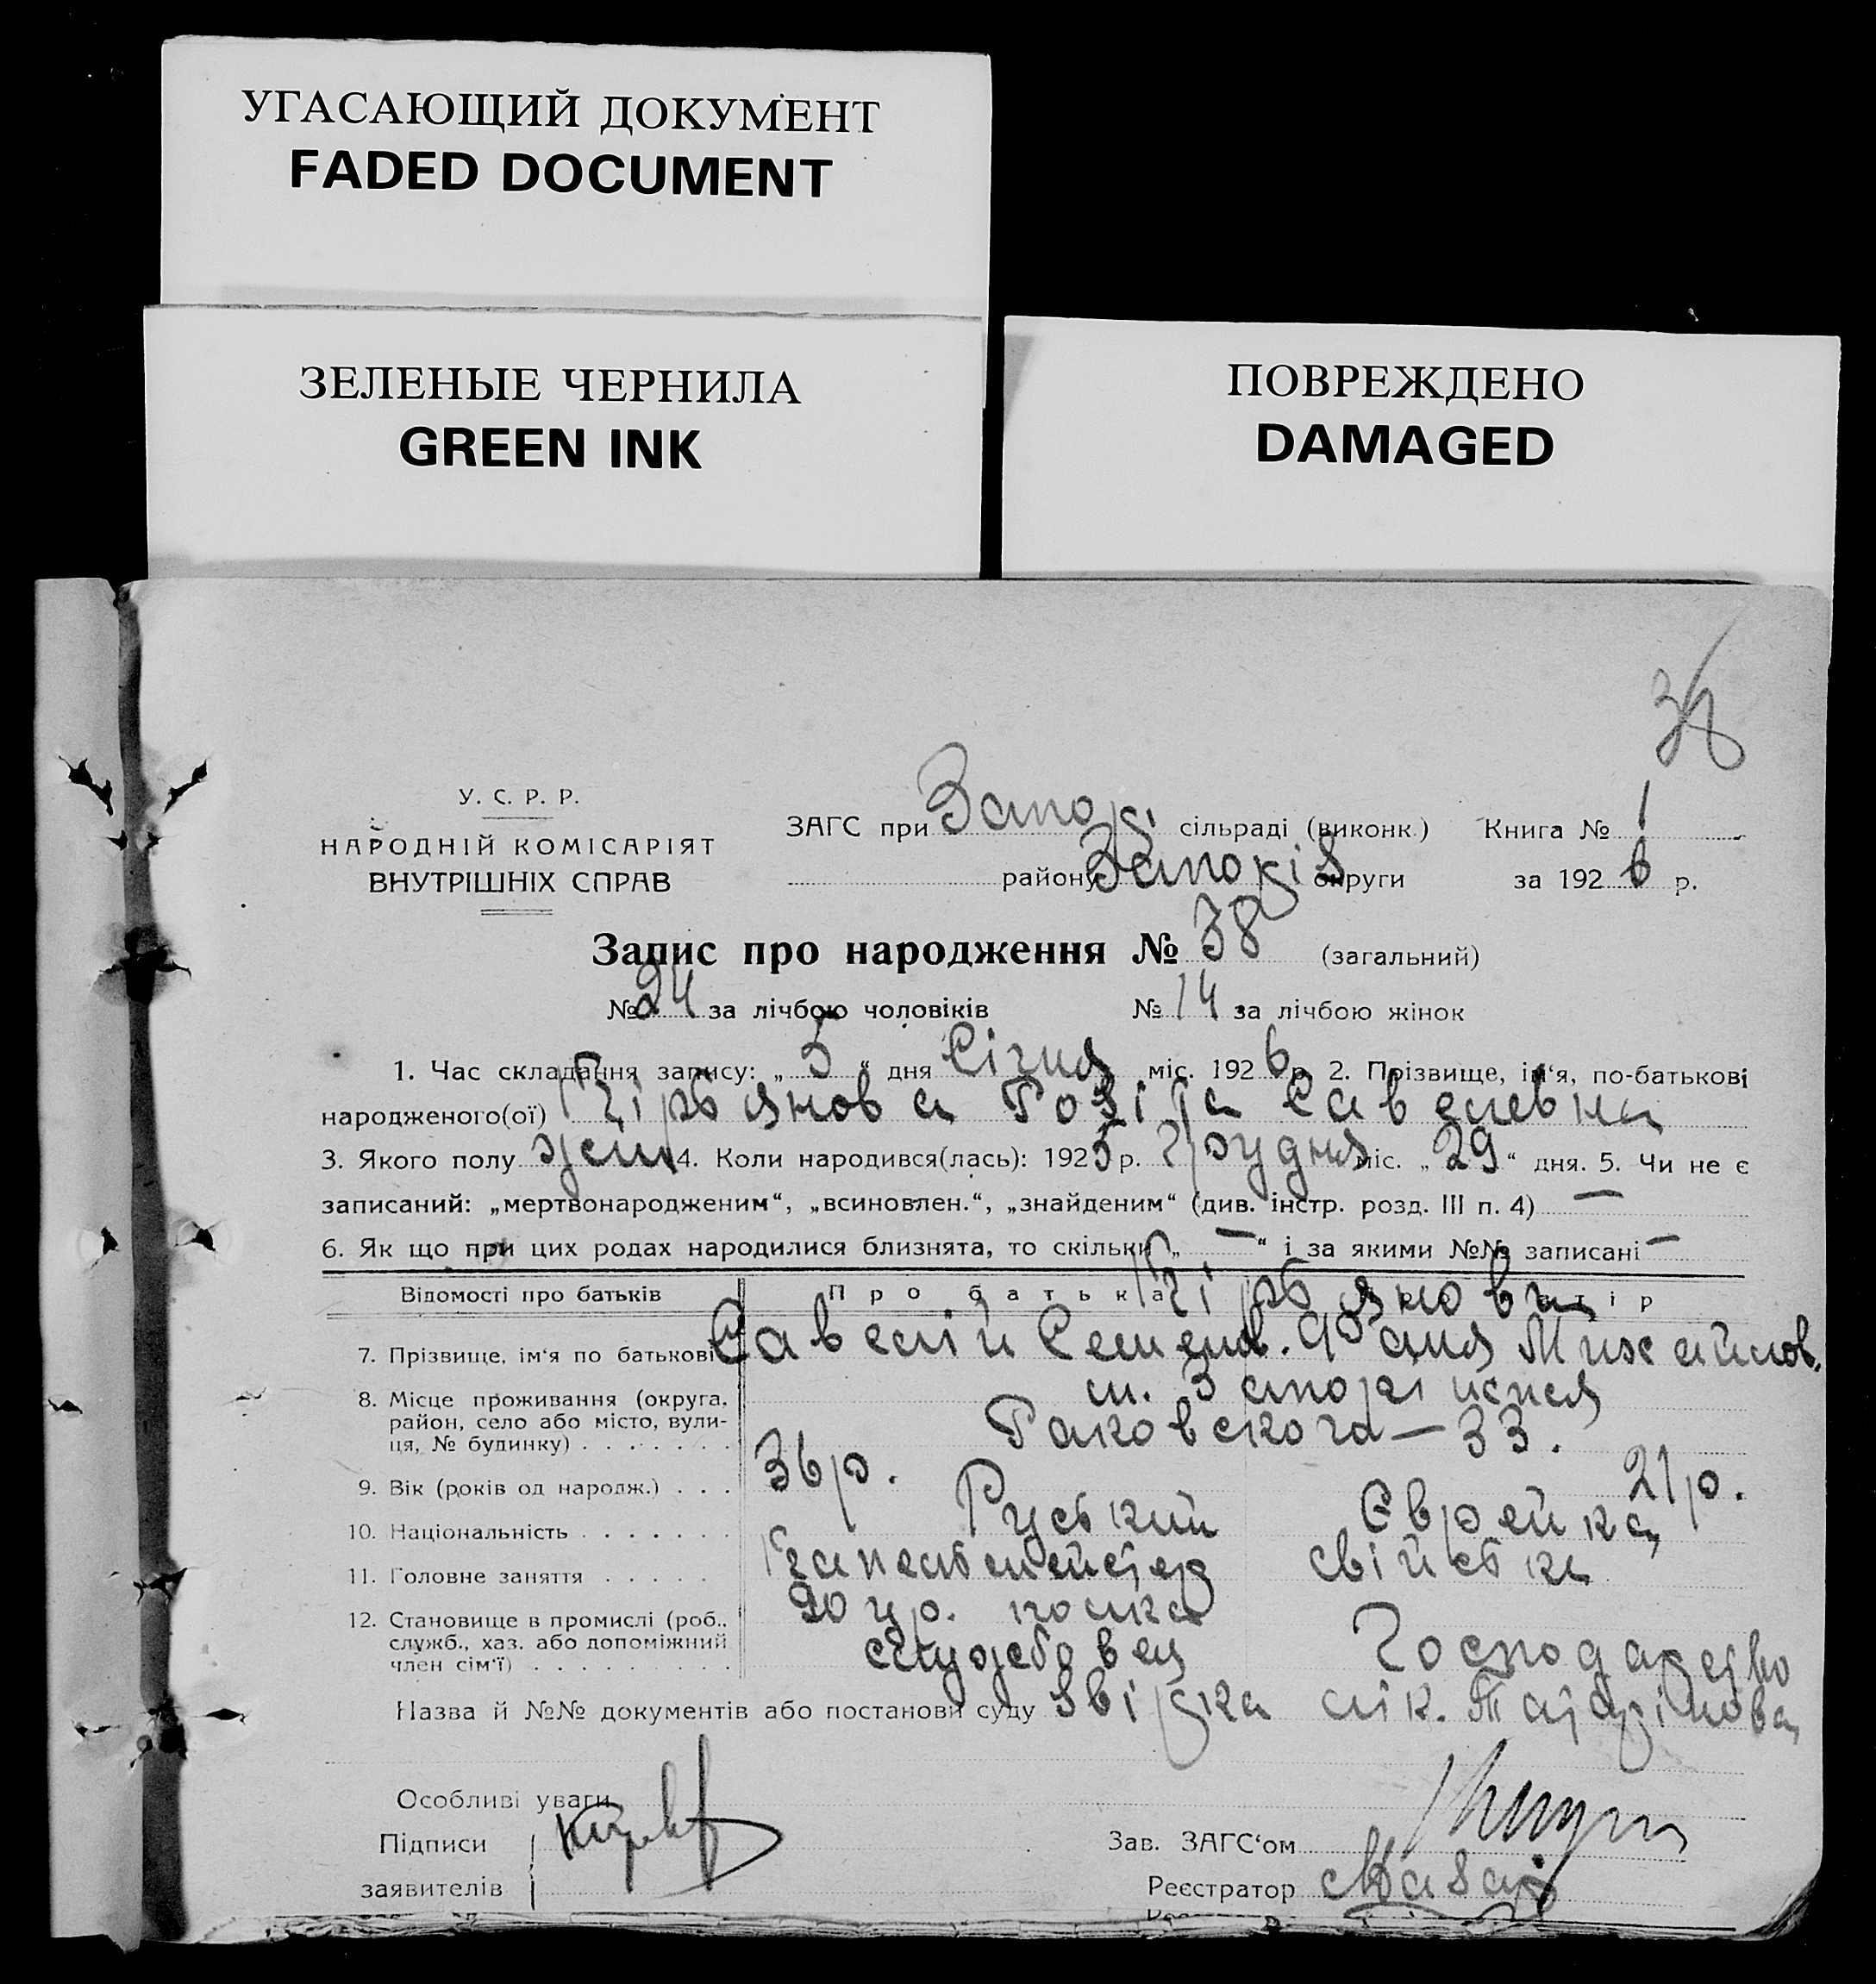 УГАСАЮЩИЙ ДОКУМЕНТ
FADED DOCUMENT
ЗЕЛЕНЫЕ ЧЕРНИЛА
GREEN INK
ПОВРЕЖДЕНО
DAMAGED
38
У. С. Р. Р.
НАРОДНІЙ КОМІСАРІЯТ
ВНУТРІШНІХ СПРАВ
ЗАГС при Запоріз сільраді (виконк.) Книга № 1
району Запоріз округи за 192 6 р.
Запис про народження № 38 (загальний)
№ 24 за лічбою чоловіків № 14 за лічбою жінок
1. Час складання запису: „ 5 “ дня Січня міс. 192 6 р. 2. Прізвище, ім‘я, по-батькові
народженого(ої) Кірьянова Роз Савелевна
3. Якого полу жін 4. Коли народився(лась): 192 5 р. Грудня міс. „ 29 “ дня. 5. Чи не є
записаний: „мертвонародженим“, „всиновлен.“, „знайденим“ (див. інстр. розд. III п. 4) —
6. Як що при цих родах народилися близнята, то скільки „ — “ і за якими №№ записані —
Відомості про батьків Про батька тір
Кірьянови
7. Прізвище, ім‘я по батькові Савелій Семенов. Фаня Михайлов.
8. Місце проживання (округа, район, село або місто, вулиця, № будинку) . . . . . . . м. Запоріжжя
Раковского — 33.
9. Вік (років од народж.) . . . 36 р. 21 р.
10. Національність . . . . . . . Руський Єврейка
11. Головне заняття . . . . . Капельмейстер свійська
90 полка
12. Становище в промислі (роб., служб., хаз. або допоміжний член сім‘ї) . . . . . . . . . службовец Господарство
Назва й №№ документів або постанови суду Звідка лік.
Особливі уваги
Підписи
заявителів
Зав. ЗАГС‘ом
Реєстратор